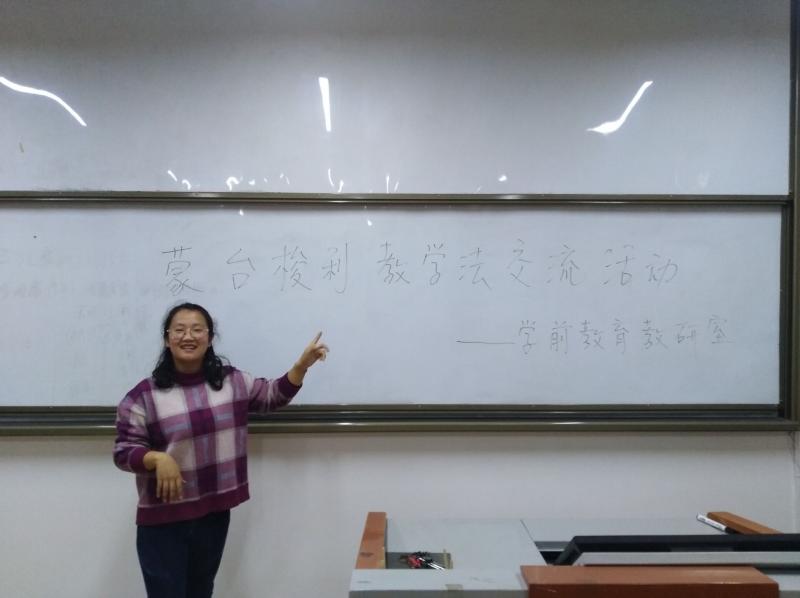 蒙台梭利教学法交流活动
——学前教育教研室